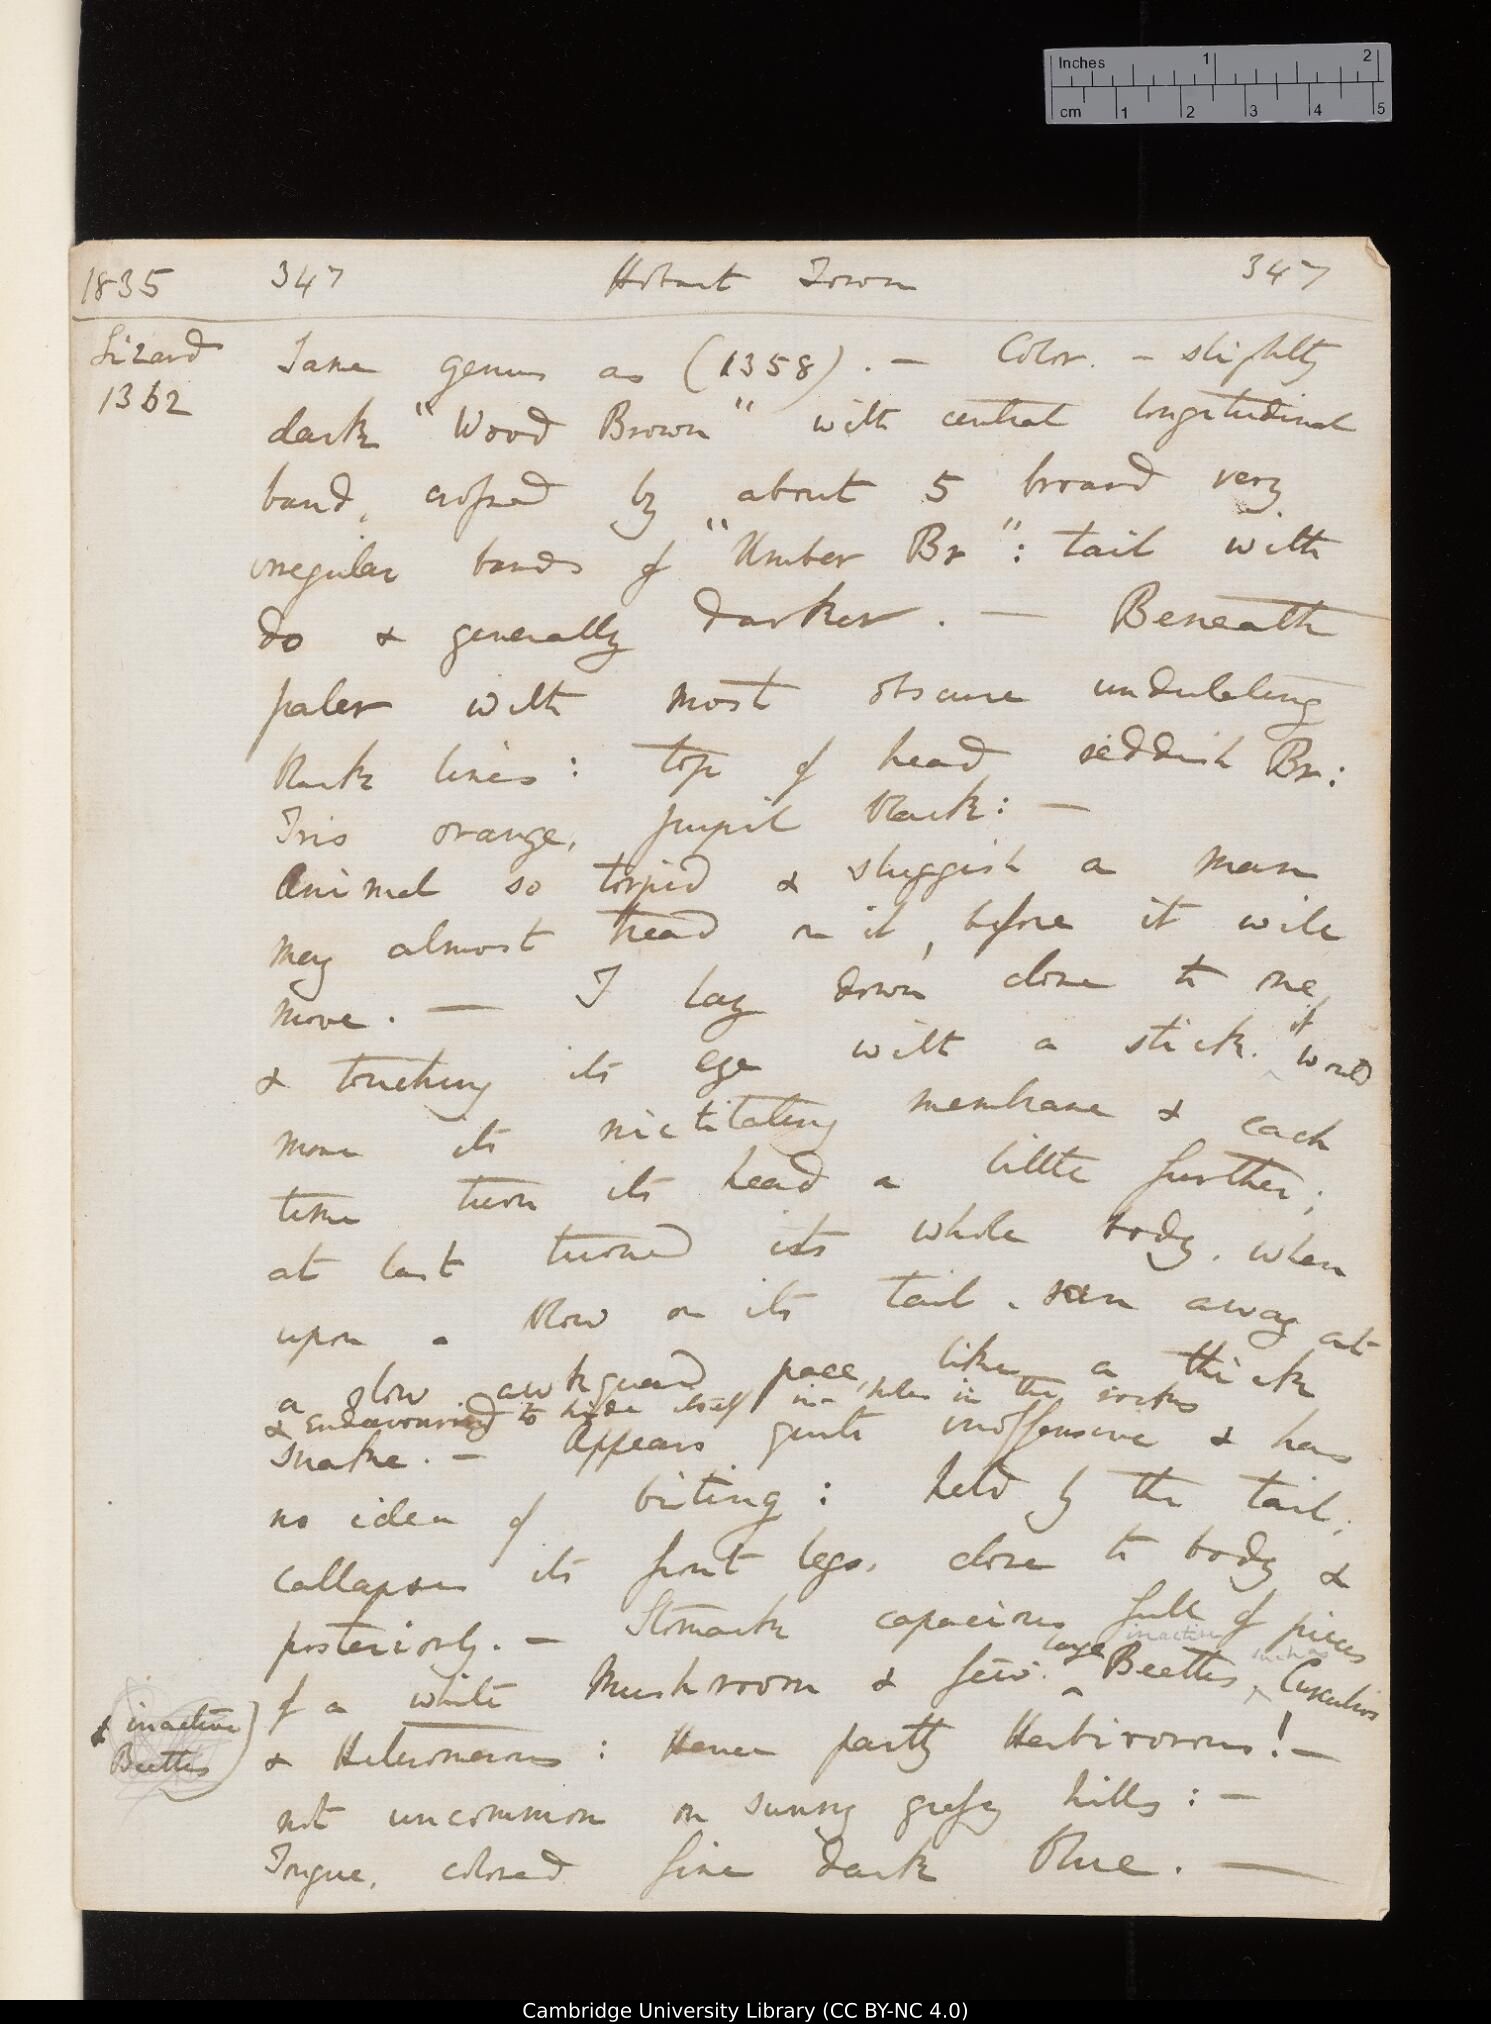 Inches 1 2
cm 1 2 3 4 5
1835 347 Hobart Town 347
Lizard
1362
Same genus as (1358). — Color. — slightly
dark "Wood Brown" with central longitudinal
band, crossed by about 5 broard very
irregular bands of "Umber Br": tail with
do & generally darker. — Beneath
paler with most obscure undulating
black lines: top of head reddish Br:
Iris orange, pupil black: —
Animal so torpid & sluggish a man
may almost tread on it, before it will
move. — I lay down close to one,
& touching its eye with a stick. it would
move its nictitating membrane & each
time turn its head a little further;
at last turned its whole body, when
upon a blow on its tail, ran away at
a slow awkguard pace, like a thick
& endeavouring to hide itself in holes in the rocks
snake. — Appears quite inoffensive & has
no idea of biting: held by the tail,
collapses its front legs, close to body &
posteriorly. — Stomach capacious full of pieces
of a white Mushroom & few large inactive Beetles, such as Curculios
& inactive
Beetles
& Heteromerous: Hence partly Herbivorous! —
not uncommon on sunny grassy hills: —
Tongue, colored fine dark blue. —
Cambridge University Library (CC BY-NC 4.0)